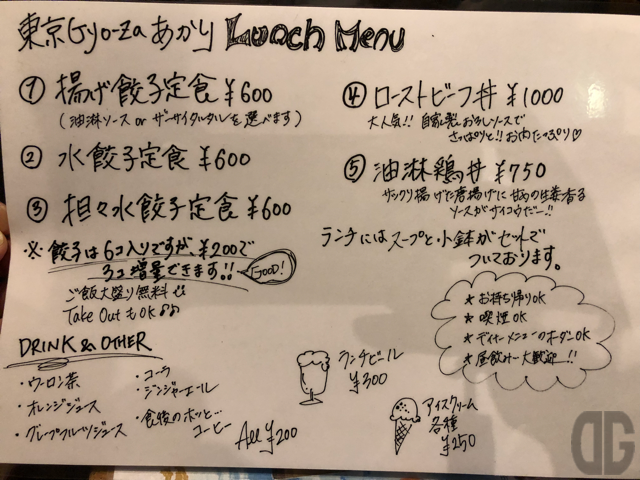 東京Gyo-zaあかり Lunch Menu
① 揚げ餃子定食 ¥600
(油淋ソース or ザーサイタルタルを選べます)
② 水餃子定食 ¥600
③ 担々水餃子定食 ¥600
※ 餃子は6コ入りですが、¥200で
3コ増量できます!!
GOOD!
ご飯大盛り無料
Take OutもOK
④ ローストビーフ丼 ¥1000
大人気!! 自家製おろしソースで
さっぱりと!! お肉たっぷり♡
⑤ 油淋鶏丼 ¥750
サックリ揚げた唐揚げに甘めの生姜香る
ソースがサイコウだー!!
ランチにはスープと小鉢がセットで
ついております。
★ お持ち帰りOK
★ 喫煙OK
★ ディナーメニューのオーダーOK
★ 昼飲み大歓迎!!
DRINK & OTHER
・ウーロン茶
・オレンジジュース
・グレープフルーツジュース
・コーラ
・ジンジャーエール
・食後のホットコーヒー
All ¥200
ランチビール
¥300
アイスクリーム
各種
¥250
DG